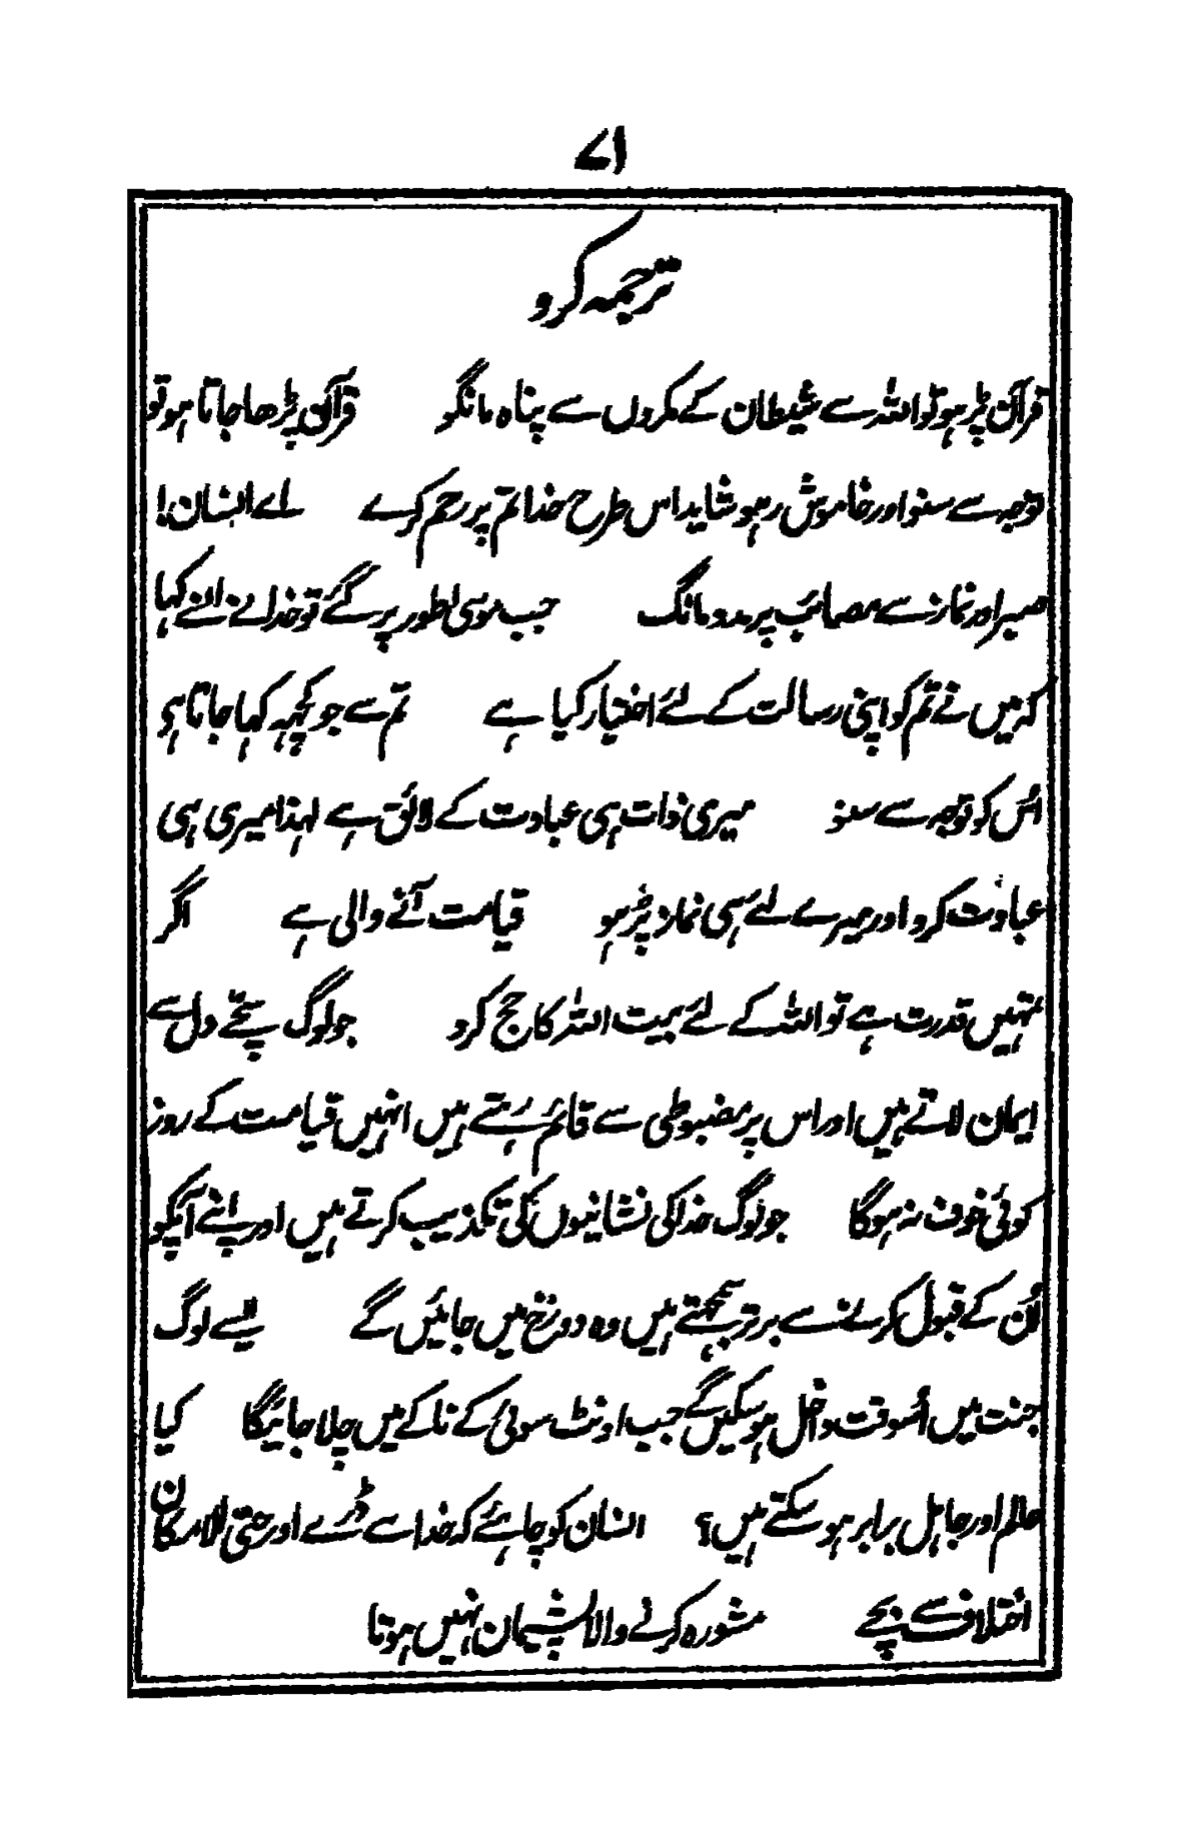 ۷۱
ترجمہ کرو
قرآن پڑہو تو اللہ سے شیطان کے مکروں سے پناہ مانگو قرآن پڑھا جاتا ہو تو
توجہ سے سنو اور خاموش رہو شاید اس طرح خدا تم پر رحم کرے اے انسان!
صبر اور نماز سے مصائب پر مدد مانگ جب موسیٰ طور پر گئے تو خدا نے ان سے کہا
کہ میں نے تم کو اپنی رسالت کے لئے اختیار کیا ہے تم سے جو کچہہ کہا جاتا ہی
اُس کو توجہ سے سنو میری ذات ہی عبادت کے لائق ہے لہذا میری ہی
عبادت کرو اور میرے لئے ہی نماز پڑہو قیامت آنے والی ہے اگر
تمہیں قدرت ہے تو اللہ کے لئے بیت اللہ کا حج کرو جو لوگ سچے دل سے
ایمان لاتے ہیں اور اس پر مضبوطی سے قائم رہتے ہیں انہیں قیامت کے روز
کوئی خوف نہ ہوگا جو لوگ خدا کی نشانیوں کی تکذیب کرتے ہیں اور اپنے آپکو
اُن کے قبول کرنے سے برتر سمجہتے ہیں وہ دوزخ میں جائیں گے ایسے لوگ
جنت میں اُسوقت داخل ہوسکیں گے جب اونٹ سوئی کے ناکے میں چلا جائیگا کیا
عالم اور جاہل برابر ہو سکتے ہیں؟ انسان کو چاہئے کہ خدا سے ڈرے اور حتی الامکان
اختلاف سے بچے مشورہ کرنے والا پشیمان نہیں ہوتا